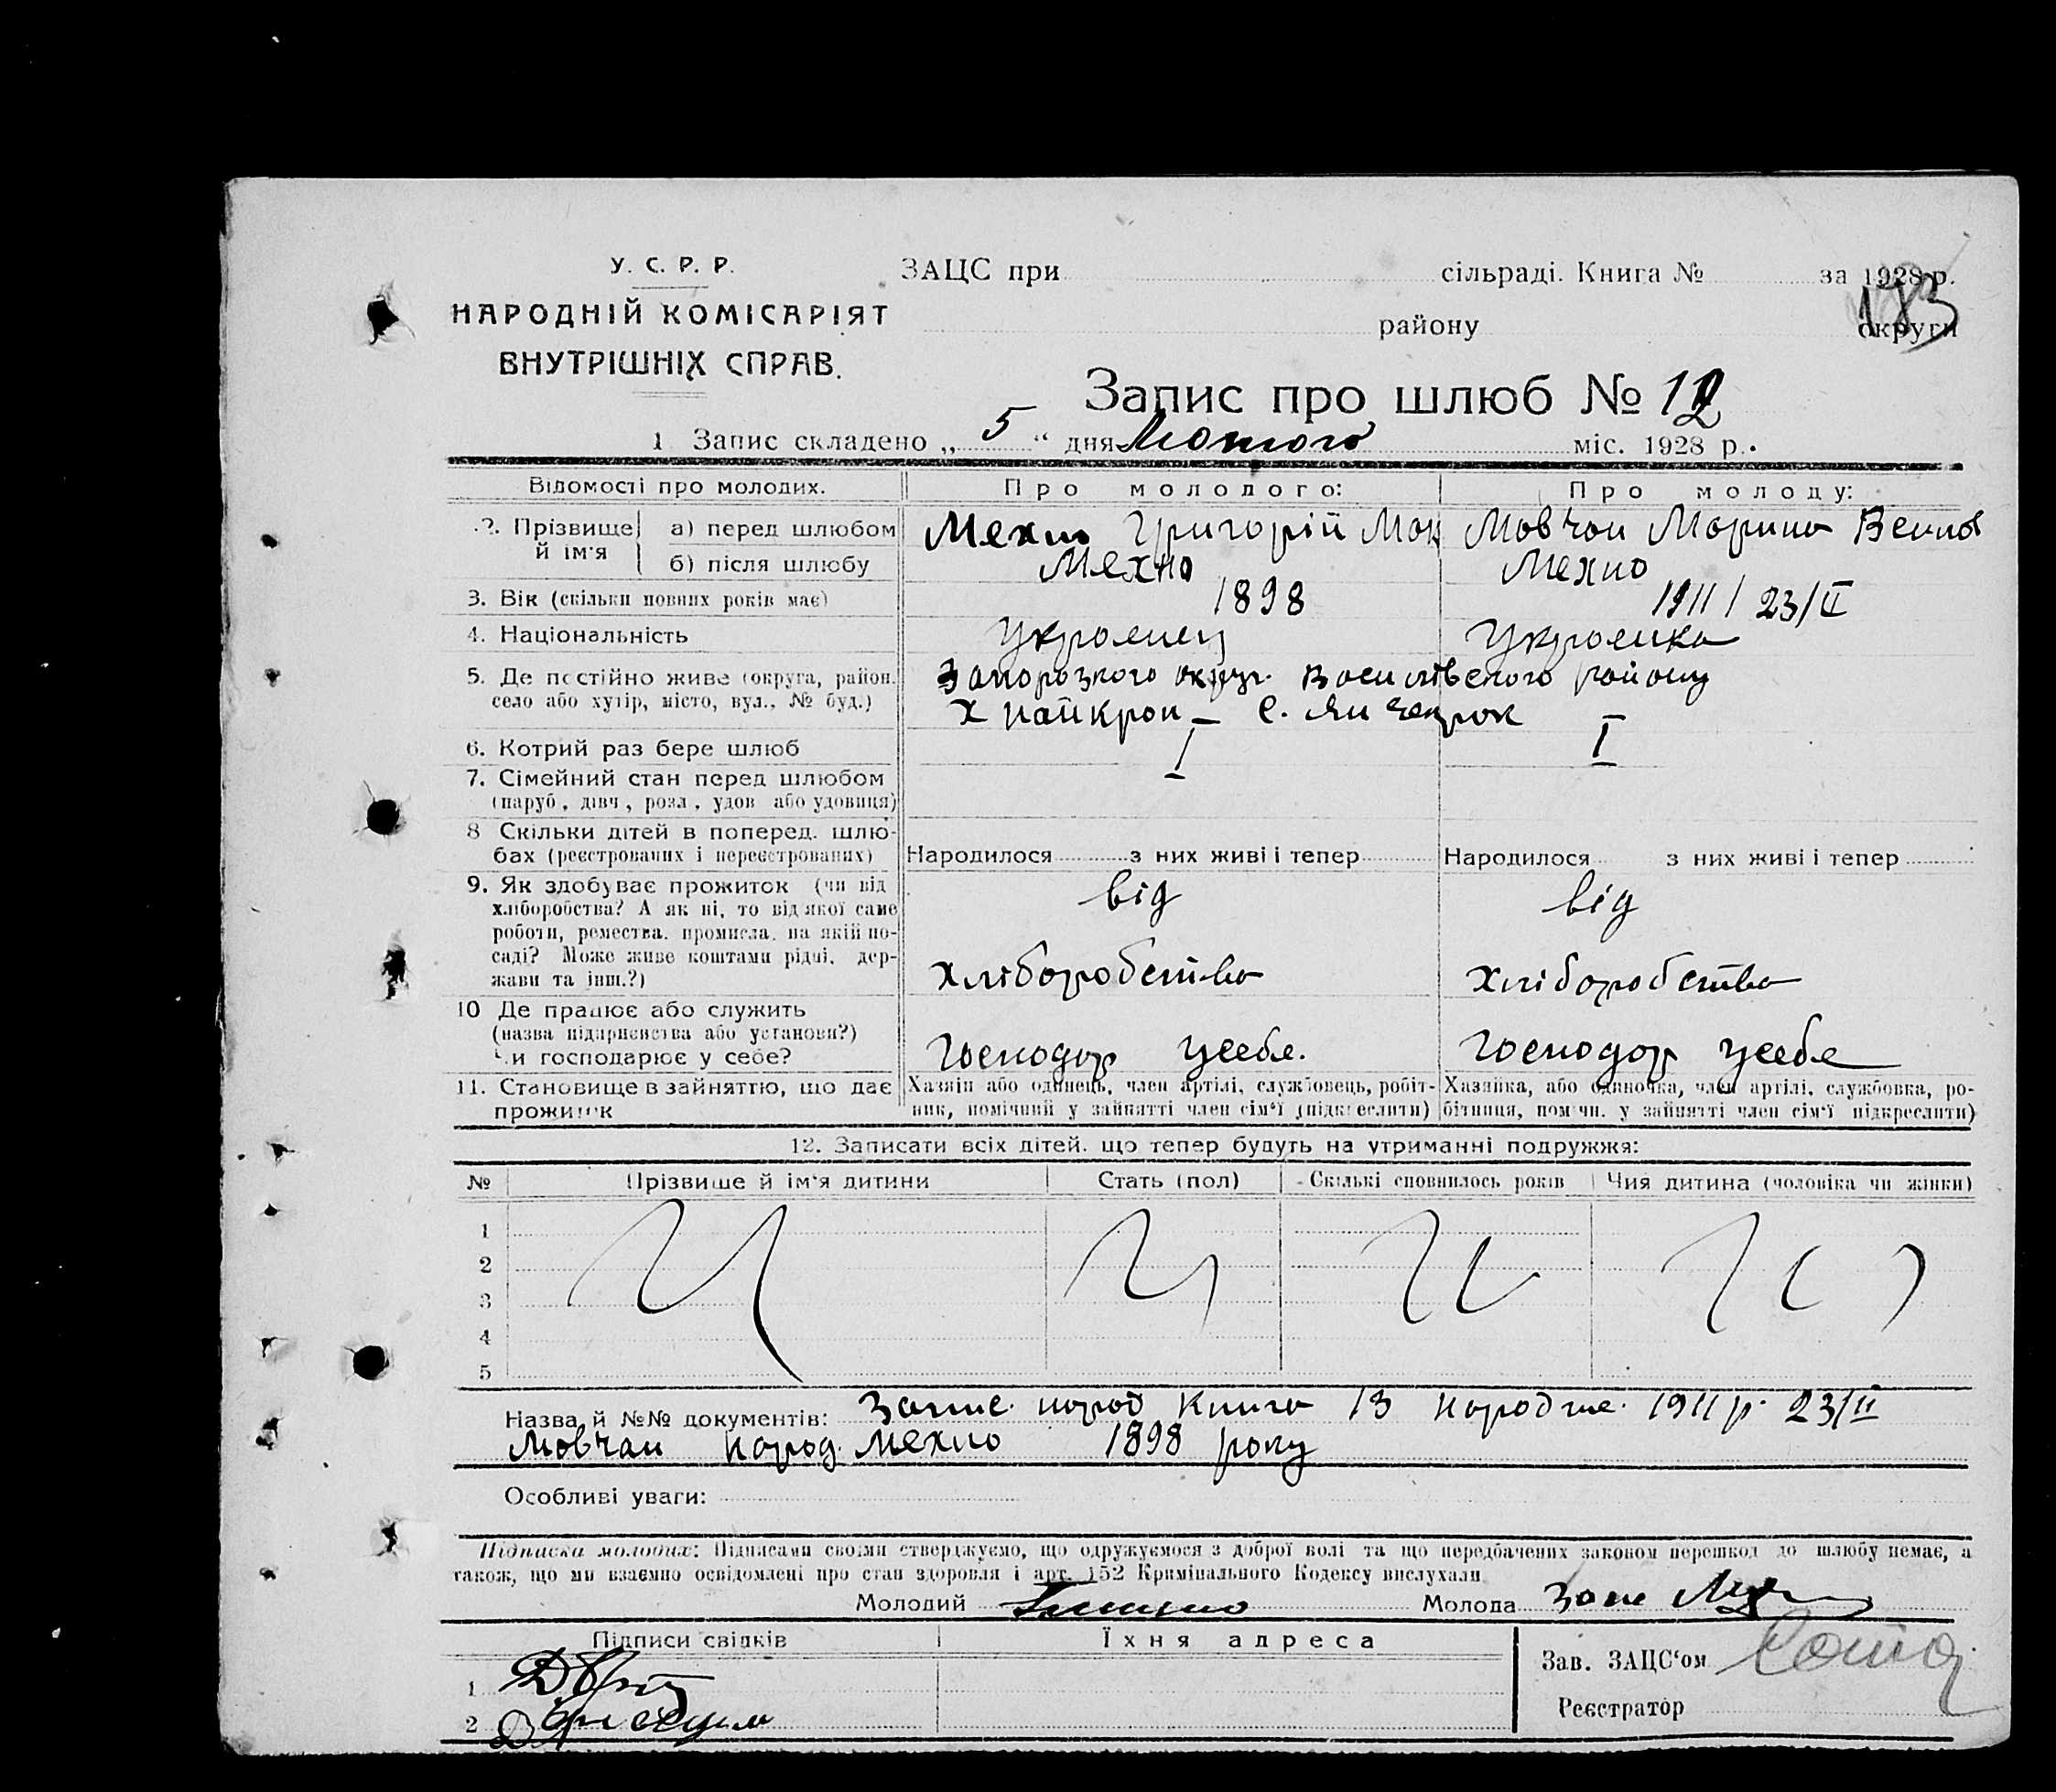 У. С. Р. Р.
НАРОДНІЙ КОМІСАРІЯТ
ВНУТРІШНІХ СПРАВ.
ЗАЦС при сільраді. Книга № за 1928 р.
району округи
183
Запис про шлюб № 12
1 Запис складено „ 5 “ дня Лютого міс. 1928 р.
Відомості про молодих. Про молодого: Про молоду:
2. Прізвище й ім'я
а) перед шлюбом Мехно Григорій Мак Мовчан Марина
б) після шлюбу Мехно Мехно
3. Вік (скільки повних років має) 1898 1911 / 23/II
4. Національність Українец Українка
5. Де постійно живе (округа, район, Запорозкого округ. Василівского району
село або хутір, місто, вул., № буд.) х Найкрон – с. Янчекрок
6. Котрий раз бере шлюб I I
7. Сімейний стан перед шлюбом
(паруб, дівч, розл, удов або удовиця)
8 Скільки дітей в поперед. шлю-
бах (реєстрованих і нереєстрованих) Народилося з них живі і тепер Народилося з них живі і тепер
9. Як здобуває прожиток (чи від від від
хліборобства? А як ні, то від якої саме
роботи, ремества, промисла, на якій по-
саді? Може живе коштами рідні, дер- хліборобства хліборобства
жави та інш.?)
10 Де працює або служить
(назва підприємства або установи?)
Чи господарює у себе? Господар усебе. Господар усебе
11. Становище в зайняттю, що дає прожиток
Хазяїн або одинець, член артілі, службовець, робіт-
ник, помічний у зайнятті член сім'ї (підкреслити)
Хазяйка, або одиночка, член артілі, службовка, ро-
бітниця, помічн. у зайнятті член сім'ї підкреслити)
12. Записати всіх дітей, що тепер будуть на утриманні подружжя:
№ Прізвище й ім'я дитини Стать (пол) Скількі сповнилось років Чия дитина (чоловіка чи жінки)
1
2
3
4
5
Назва й №№ документів: Запис. народ Книга 13 народже. 1911 р. 23/II
Мовчан народ. Мехно 1898 року
Особливі уваги:
Підписка молодих: Підписами своїми стверджуємо, що одружуємося з доброї волі та що передбачених законом перешкод до шлюбу немає, а
також, що ми взаємно освідомлені про стан здоровля і арт. 152 Кримінального Кодексу вислухали
Молодий Молода
Підписи свідків Їхня адреса
Зав. ЗАЦС'ом
1
Реєстратор
2